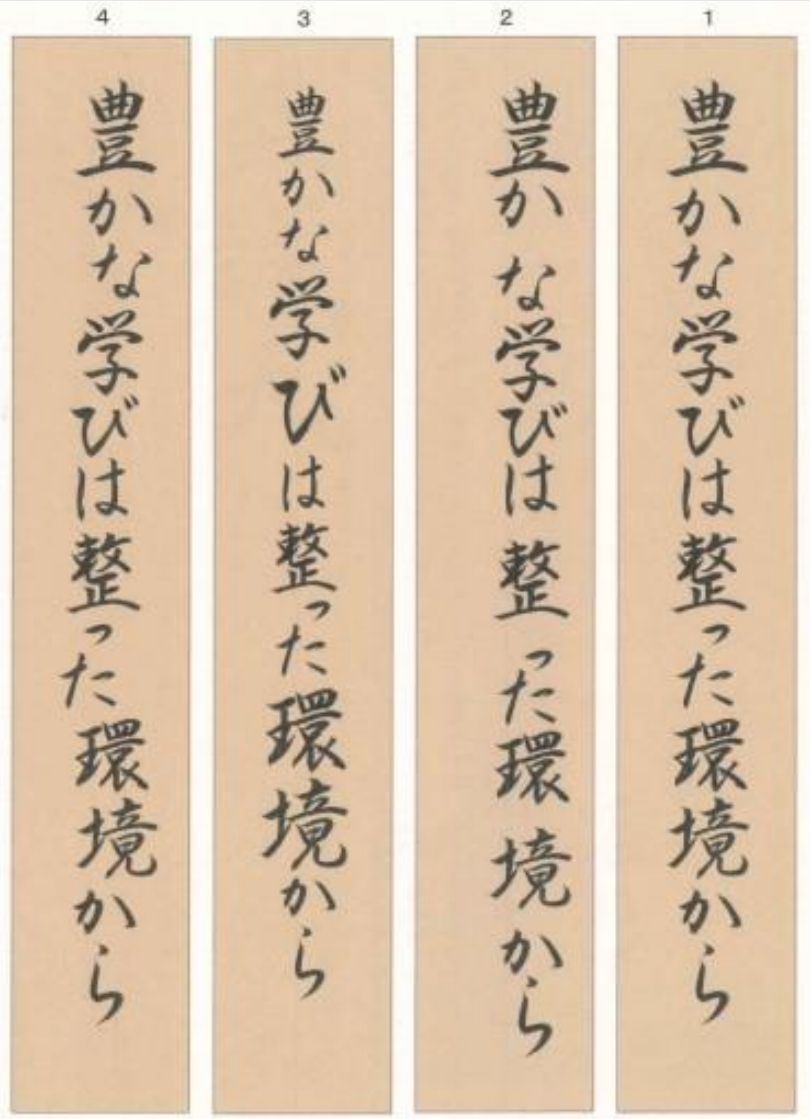 1
豊かな学びは整った環境から
2
豊かな学びは整った環境から
3
豊かな学びは整った環境から
4
豊かな学びは整った環境から